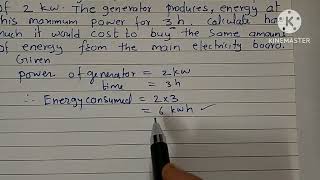 of 2 kW. The generator produces, energy at
this maximum power for 3 h. Calculate how
much it would cost to buy the same amount
of energy from the main electricity board.
Given
power of generator = 2 kw
time = 3h
∴ Energy consumed = 2 x 3
= 6 kwh ✓
KINEMASTER